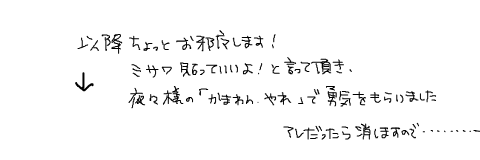 以降ちょっとお邪魔します!
ミサワ貼っていいよ!と言って頂き、
夜々様の「かまわん、やれ」で勇気をもらいました
アレだったら消しますので…………